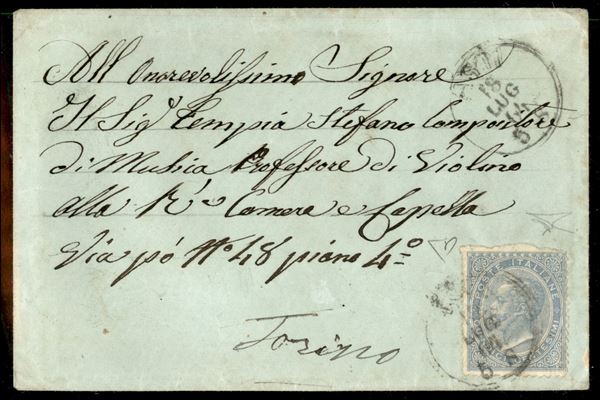 All' Onorevolissimo Signore
Il Sig.r Tempia Stefano Compositore
di Musica Professore di Violino
alla R.a Camera e Capella
Via pó N.o 48 piano 4.o
Torino
18
LUG
POSTE ITALIANE